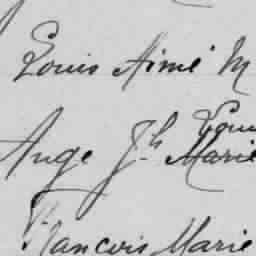 Louis Aimé M
Louis
Ange Jh Marie
François Marie